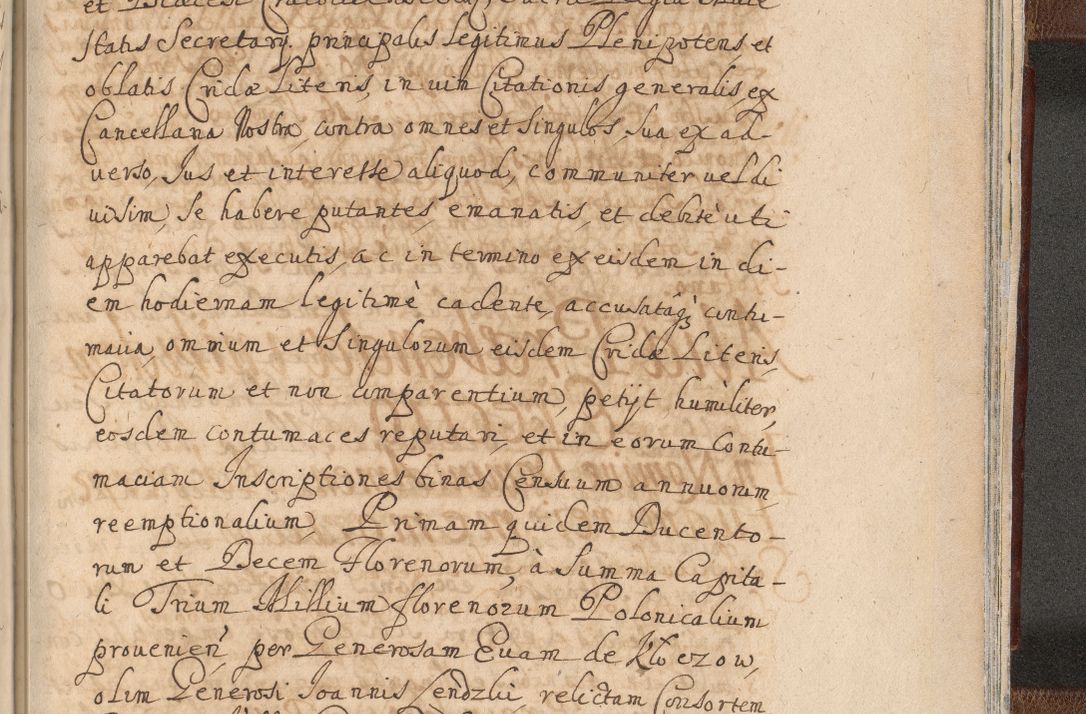 statis Secretarij principalis Legitimus Plenipotens, et
oblatis Cridæ Literis, in vim Citationis generalis, ex
Cancellaria Nostra, contra omnes et singulos, sua ex ad-
verso, Jus et interesse aliquod, communiter vel di
visim, se habere putantes, emanatis, et debitè uti
apparebat executis, ac in termino ex eisdem in di-
em hodiernam legitimè cadente, accusatâq; contu-
macia, omnium et singulorum eisdem Cridæ Literis,
Citatorum et non comparentium, petijt humiliter,
eosdem contumaces reputari, et in eorum Contu-
maciam Inscriptiones binas Censuum annuorum
reemptionalium, Primam quidem Ducento-
rum et Decem Florenorum, à Summa Capita-
li Trium Millium florenorum Polonicalium
provenien̄ per Generosam Evam de Kłoezow,
olim Generosi Joannis Sendzlii, relictam Consortem